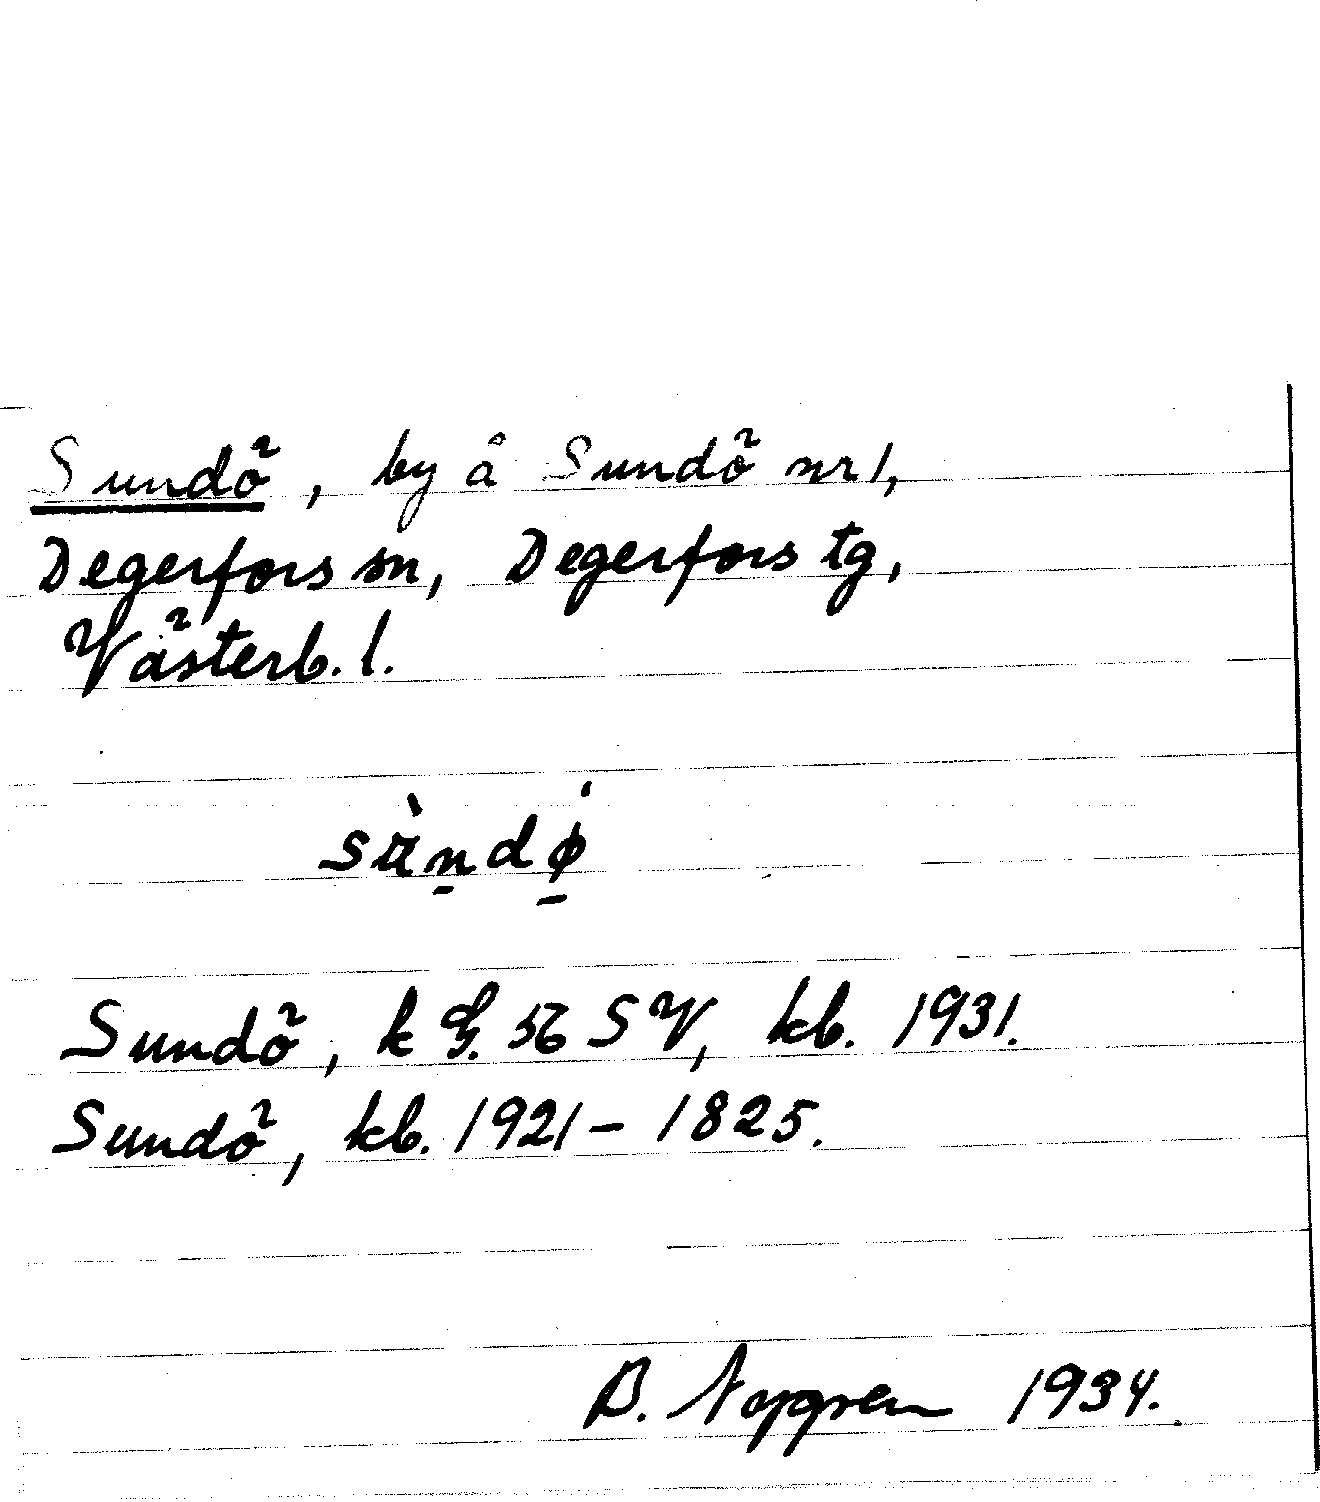 Sundö, by å Sundö nr 1,
Degerfors sn, Degerfors tg,
Västerb. l.
Sundö, k G. 56 SV, kb. 1931.
Sundö, kb. 1921–1825.
B. 1934.